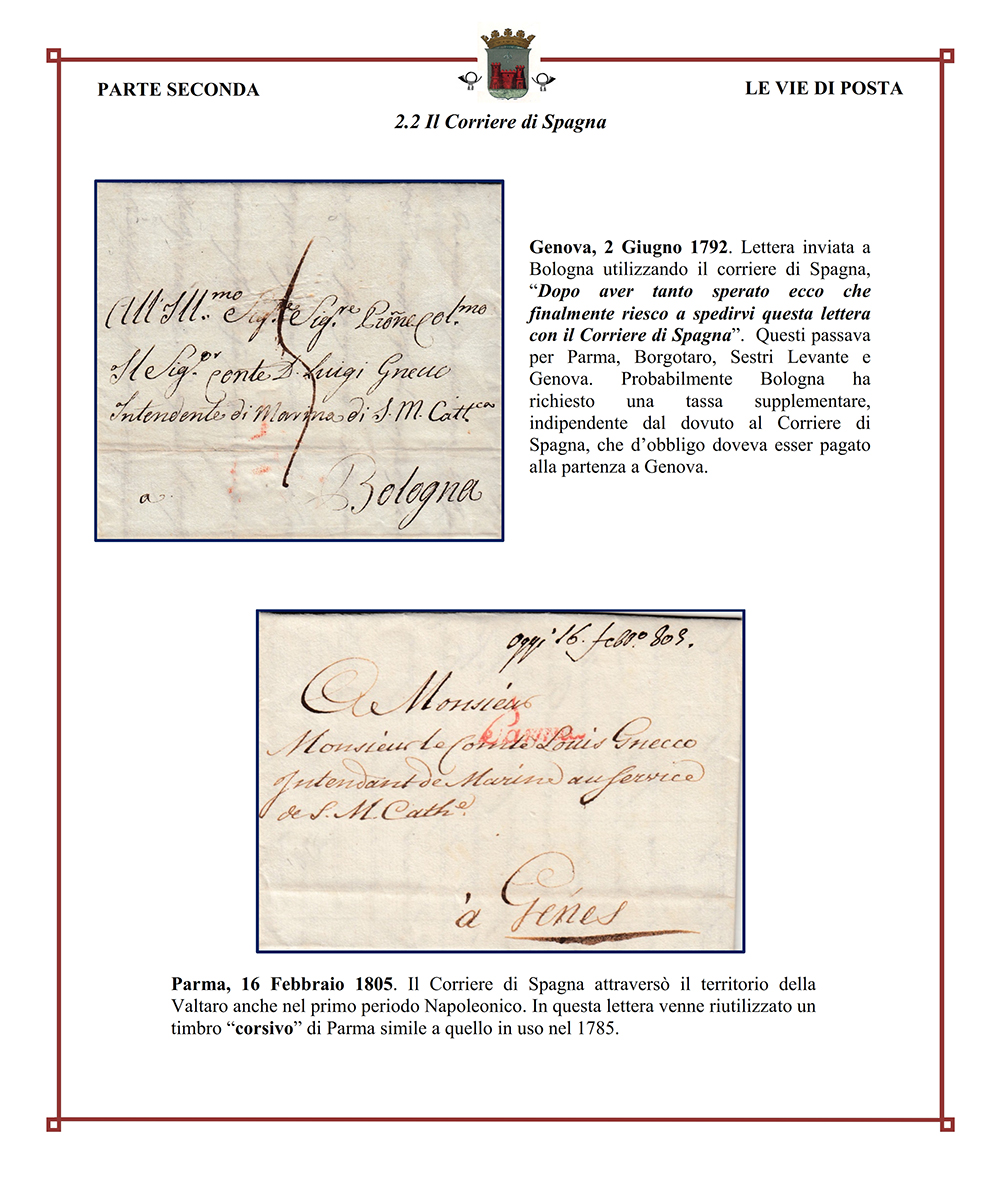 PARTE SECONDA
LE VIE DI POSTA
2.2 Il Corriere di Spagna
All' Ill.mo Sig.re Sig.re Proñe Col.mo
Il Sig.or Conte D. Luigi Gnecco
Intendente di Marina di S. M. Catt.ca
a Bologna
Genova, 2 Giugno 1792. Lettera inviata a
Bologna utilizzando il corriere di Spagna,
“Dopo aver tanto sperato ecco che
finalmente riesco a spedirvi questa lettera
con il Corriere di Spagna”. Questi passava
per Parma, Borgotaro, Sestri Levante e
Genova. Probabilmente Bologna ha
richiesto una tassa supplementare,
indipendente dal dovuto al Corriere di
Spagna, che d’obbligo doveva esser pagato
alla partenza a Genova.
oggi 16. febb.o 805.
A Monsieur
Parma
Monsieur le Comte Louis Gnecco
Intendant de Marine au Service
de S. M. Cath.e
à Gênes
Parma, 16 Febbraio 1805. Il Corriere di Spagna attraversò il territorio della
Valtaro anche nel primo periodo Napoleonico. In questa lettera venne riutilizzato un
timbro “corsivo” di Parma simile a quello in uso nel 1785.